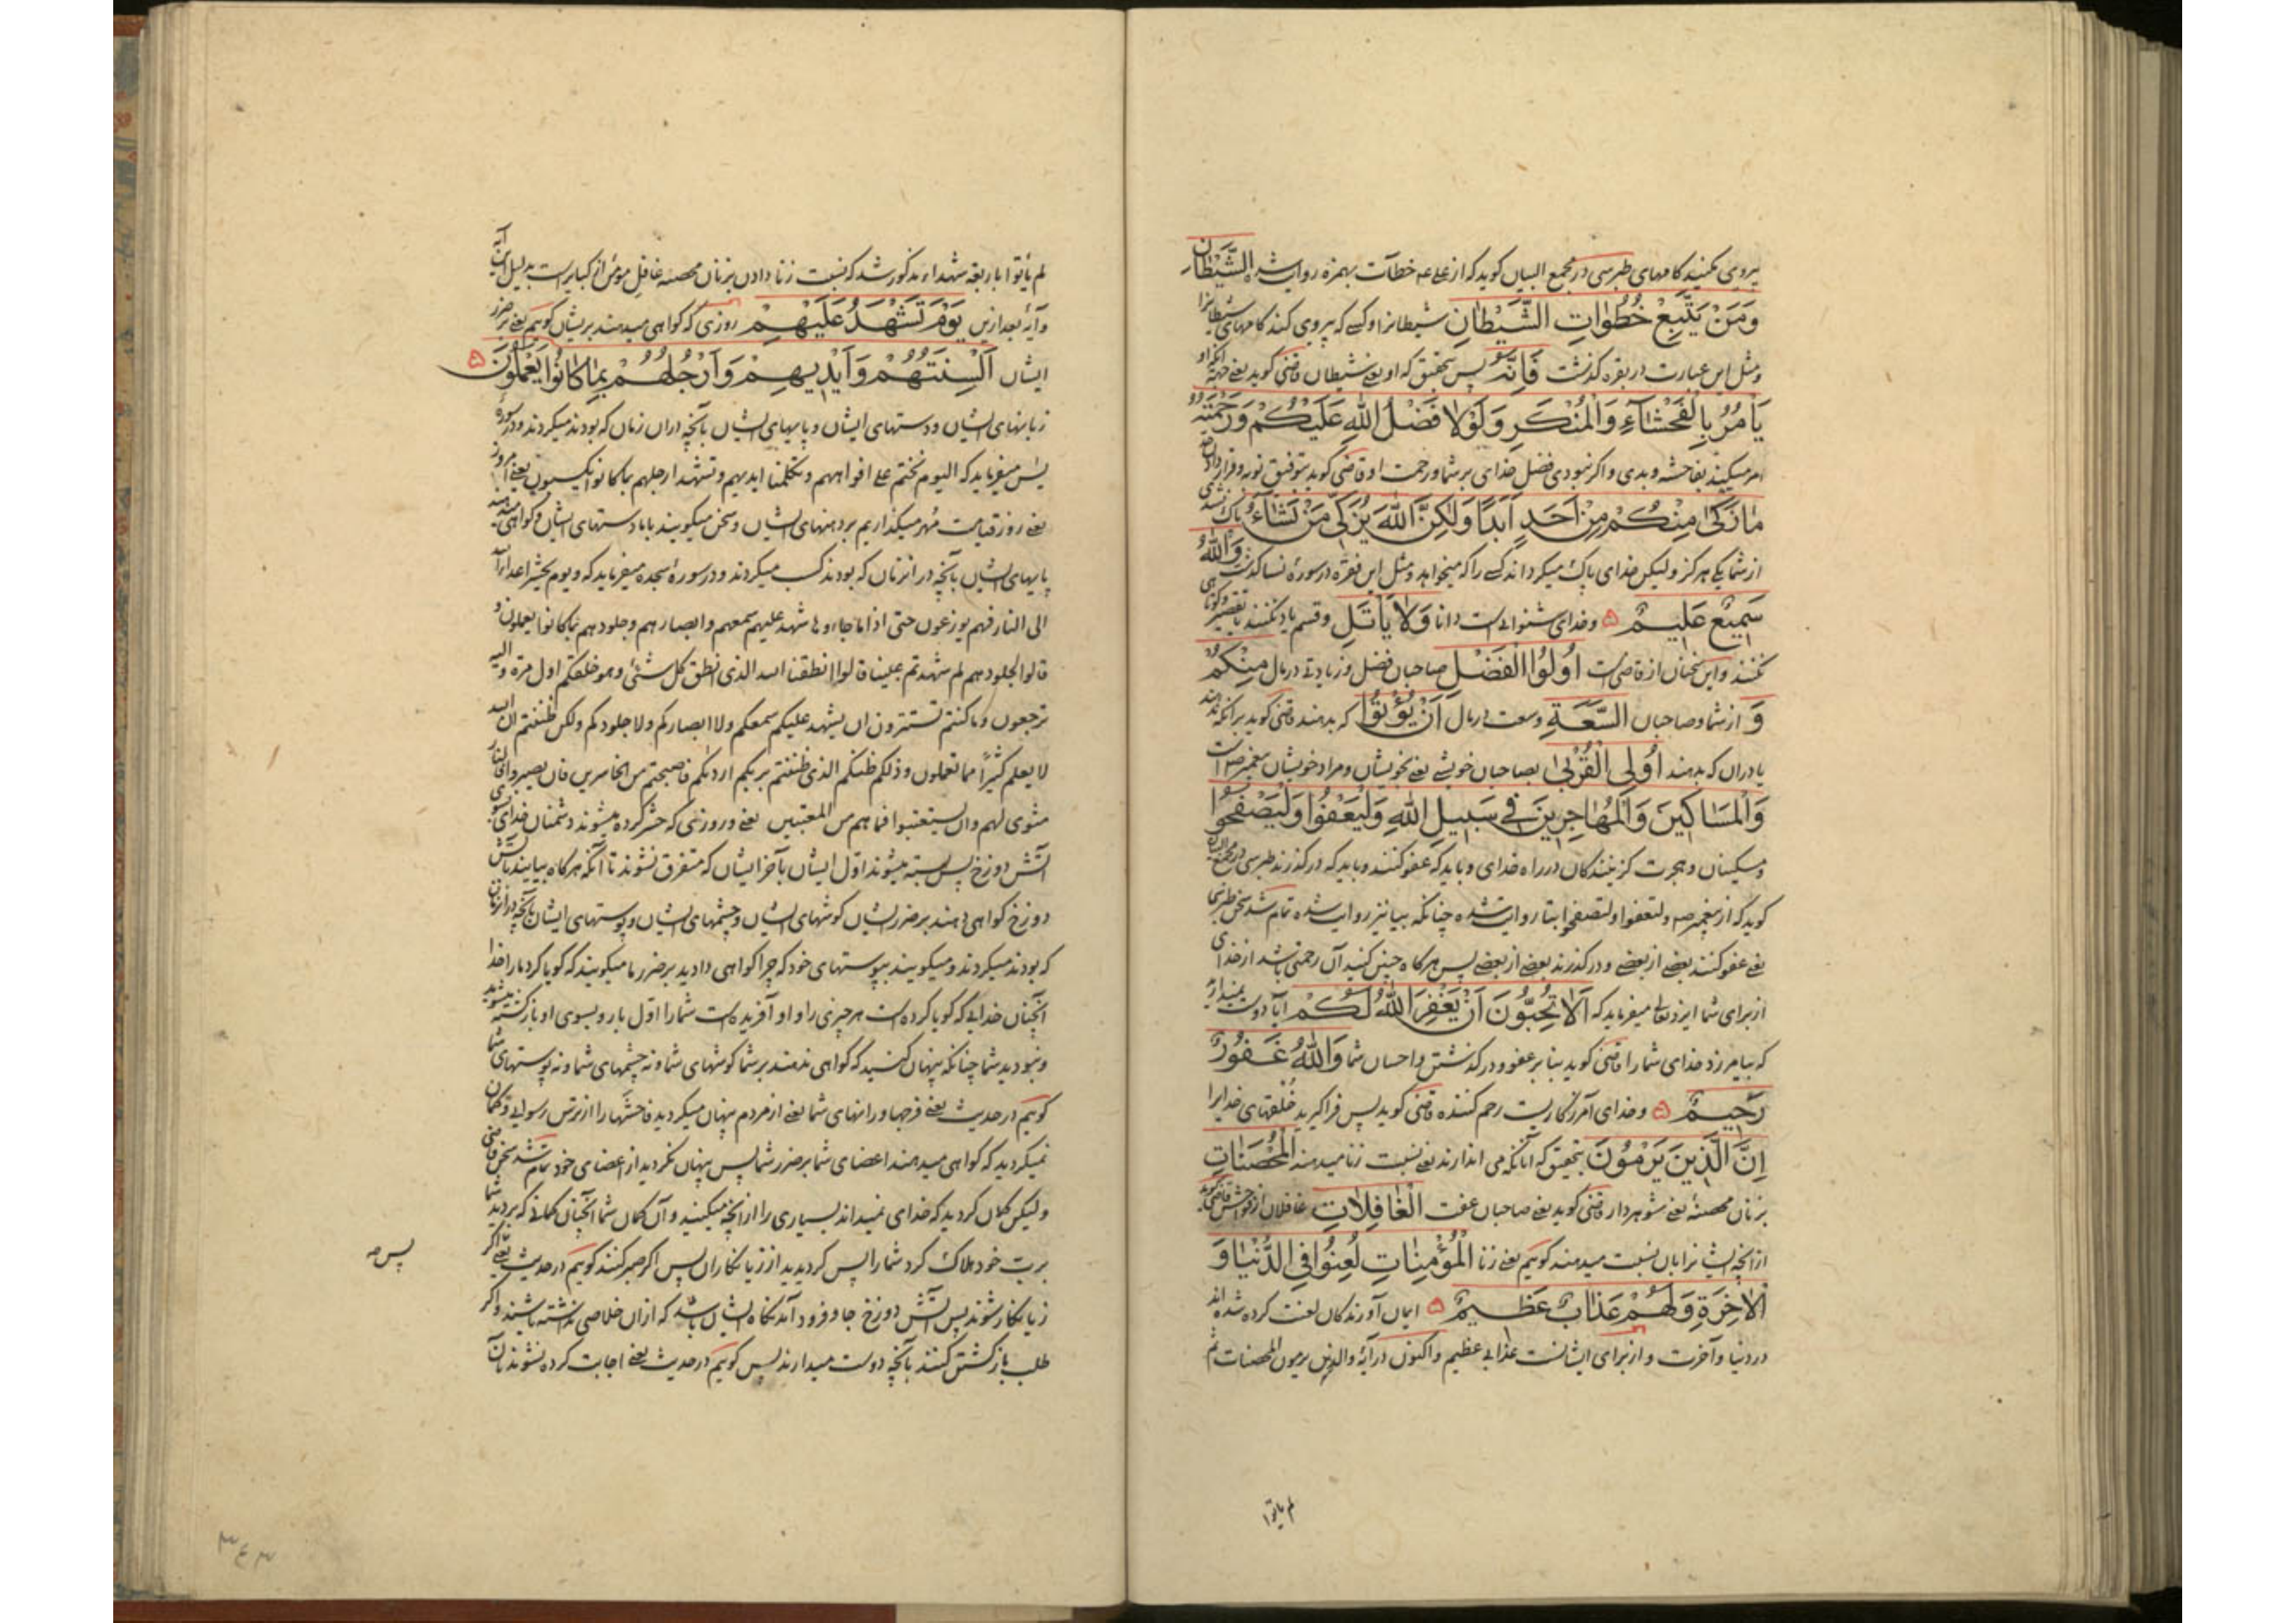 پیروی مکنید کامهای طبرسی در مجمع البیان کوید که از علی ع خطأت بهمزه روایت شده الشَّيْطَانِ
وَمَنْ يَتَّبِعْ خُطُوَاتِ الشَّيْطَانِ شیطانرا و کسے که پیروی کند کامهای شیطانرا
و مثل این عبارت در بقره کذشت فَاِنَّهُ پس بتحقیق که او یعنے شیطان قاضی کوید یعنے
يَأْمُرُ بِالْفَحْشَآءِ وَالْمُنْكَرِ وَلَوْلَا فَضْلُ اللّٰهِ عَلَيْكُمْ وَرَحْمَتُهُ
امر میکند بفاحشه و بدی و اکر نبودی فضل خدای بر شما و رحمت او قاضی کوید بتوفیق توبه و قرار دادن
مَا زَكَىٰ مِنْكُمْ مِنْ اَحَدٍ اَبَدًا وَلٰكِنَّ اللّٰهَ يُزَكِّي مَنْ يَشَآءُ پاک نشدی
از شما یکے هرکز و لیکن خدای پاک میکرداند کسے را که میخواهد و مثل این فقره در سورهٔ نسا کذشت وَاللّٰهُ
سَمِيعٌ عَلِيمٌ ه و خدای شنوا است دانا وَلَا يَأْتَلِ و قسم یاد نکنند یا تقصیر و کوتاهی
نکنند و این سخنان از قاضی است اُولُوا الْفَضْلِ صاحبان فضل و زیادتی در مال مِنْكُمْ
وَ از شما و صاحبان السَّعَةِ وسعت در مال اَنْ يُؤْتُوا که بدهند قاضی کوید بر آنکه ندهند
یا در آن که بدهند اُولِي الْقُرْبىٰ بصاحبان خویشے یعنے بخویشان و مراد خویشان پیغمبر ص است
وَالْمَسَاكِينَ وَالْمُهَاجِرِينَ فِي سَبِيلِ اللّٰهِ وَلْيَعْفُوا وَلْيَصْفَحُوا
و مسکینان و هجرت کزینندکان در راه خدای و باید که عفو کنند و باید که درکذرند طبرسی در مجمع البیان
کوید که از پیغمبر ص ولتعفوا ولتصفحوا بتا روایت شده چنانکه بیا نیز روایت شده تمام شد سخن طبرسی
یعنے عفو کنند بعضے از بعضے و درکذرند بعضے از بعضے پس هرکاه چنین کنید آن رحمتی باشد از خدای
از برای شما ایزد تعالی میفرماید که اَلَا تُحِبُّونَ اَنْ يَغْفِرَ اللّٰهُ لَكُمْ آیا دوست نمیدارید
که بیامرزد خدای شما را قاضی کوید بنا بر عفو و درکذشتن و احسان شما وَاللّٰهُ غَفُورٌ
رَحِيمٌ ه و خدای آمرزکاریست رحم کننده قاضی کوید پس فراکیرید خُلقهای خدایرا
اِنَّ الَّذِينَ يَرْمُونَ بتحقیق که آنانکه می اندازند یعنے نسبت زنا میدهند الْمُحْصَنَاتِ
بزنان محصنه یعنے شوهردار قاضی کوید یعنے صاحبان عفت الْغَافِلَاتِ غافلان از فواحش قاضی کوید
از آنچه ایشانرا بآن نسبت میدهند کوییم یعنے زنا الْمُؤْمِنَاتِ لُعِنُوا فِي الدُّنْيَا وَ
الْاٰخِرَةِ وَلَهُمْ عَذَابٌ عَظِيمٌ ه ایمان آورندکان لعنت کرده شده اند
در دنیا و آخرت و از برای ایشانست عذابی عظیم و اکنون در آیهٔ والذین یرمون المحصنات ثم
لم یاتوا
لم یأتوا باربعة شهداء مذکور شد که نسبت زنا دادن بزنان محصنه غافل مؤمن از کبایر است بدلیل این آیه
و آیهٔ بعد ازین يَوْمَ تَشْهَدُ عَلَيْهِمْ روزی که کواهی میدهند بریشان کوییم یعنے بر ضرر
ایشان اَلْسِنَتُهُمْ وَاَيْدِيهِمْ وَاَرْجُلُهُمْ بِمَا كَانُوا يَعْمَلُونَ ه
زبانهای ایشان و دستهای ایشان و پایهای ایشان بآنچه در آن زمان که بودند میکردند و در سورهٔ
یس میفرماید که الیوم نختم علی افواههم وتکلمنا ایدیهم وتشهد ارجلهم بما کانوا یکسبون یعنے امروز
یعنے روز قیامت مُهر میکذاریم بر دهنهای ایشان و سخن میکویند با ما دستهای ایشان و کواهی میدهند
پایهای ایشان بآنچه در انزمان که بودند کسب میکردند و در سورهٔ سجده میفرماید که ویوم یحشر اعداء الله
الی النار فهم یوزعون حتی اذا ما جاءوها شهد علیهم سمعهم وابصارهم وجلودهم بما کانوا یعملون و
قالوا لجلودهم لم شهدتم علینا قالوا انطقنا الله الذی انطق کل شئی وهو خلقکم اول مرة والیه
ترجعون وما کنتم تستترون ان یشهد علیکم سمعکم ولا ابصارکم ولا جلودکم ولکن ظننتم ان الله
لا یعلم کثیراً مما تعملون وذلکم ظنکم الذی ظننتم بربکم اردیکم فاصبحتم من الخاسرین فان یصبروا فالنار
مثوی لهم وان یستعتبوا فما هم من المعتبین یعنے و روزی که حشر کرده میشوند دشمنان خدای بسوی
آتش دوزخ پس بسته میشوند اول ایشان بآخر ایشان که متفرق نشوند تا آنکه هرکاه بیایند بآتش
دوزخ کواهی دهند بر ضرر ایشان کوشهای ایشان و چشمهای ایشان و پوستهای ایشان بآنچه در انزمان
که بودند میکردند و میکویند بپوستهای خود که چرا کواهی دادید بر ضرر ما میکویند که کویا کرد ما را خدا
آنچنان خدایی که کویا کرده است هر چیزی را و او آفریده است شما را اول بار و بسوی او بازکشته میشوید
و نبودید شما چنانکه پنهان کنید که کواهی ندهند بر شما کوشهای شما و نه چشمهای شما و نه پوستهای شما
کوییم در حدیث یعنے فرجها و رانهای شما یعنے از مردم پنهان میکردید فاحشها را از ترس رسوایی و کمان
نمیکردید که کواهی میدهند اعضای شما بر ضرر شما پس پنهان نکردید از اعضای خود تمام شد سخن قاضی
ولیکن کمان کردید که خدای نمیداند بسیاری را از آنچه میکنید و آن کمان شما آنچنان کمانی که بردید شما
بربّ خود هلاک کرد شما را پس کردیدید از زیانکاران پس اکر صبر کنند کوییم در حدیث یعنے اکر
زیانکار شوند پس آتش دوزخ جا و فرود آمدنکاه ایشان باشد که از آن خلاصی نداشته باشند و اکر
طلب بازکشتن کنند بآنچه دوست میدارند پس کوییم در حدیث یعنے اجابت کرده نشوند بآن
۳۴۳